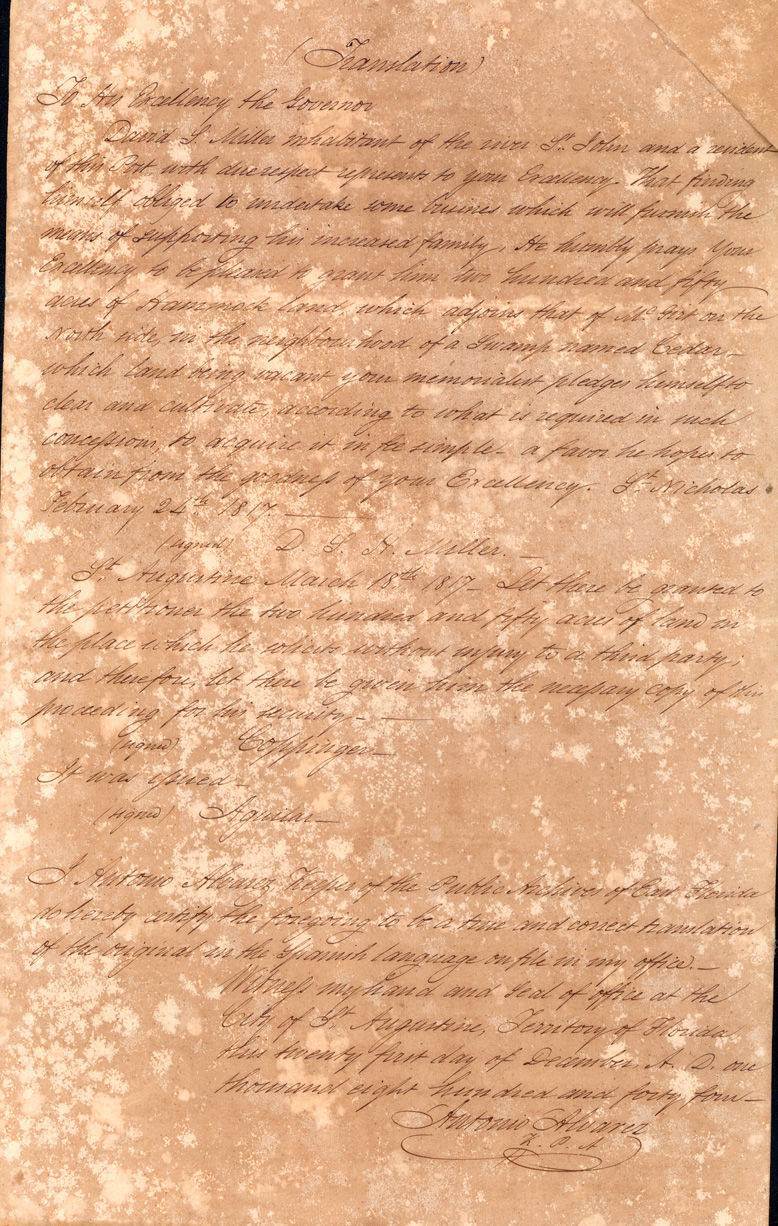 (Translation)
To His Excellency the Governor
David S. Miller inhabitant of the river St. John and a resident
of this Post with due respect represents to your Excellency. That finding
himself obliged to undertake some business which will furnish the
means of supporting his increased family, He humbly prays Your
Excellency to be pleased to grant him two hundred and fifty
acres of Hammock land, which adjoins that of McGirt on the
North side, in the neighbourhood of a Swamp named Cedar—
which land being vacant your memorialist pledges himself to
clear and cultivate, according to what is required in such
concessions, to acquire it in fee simple— a favor he hopes to
obtain from the goodness of your Excellency. St. Nicholas
February 24th 1817.—
(signed) D. S. H. Miller.—
St. Augustine March 18th 1817— Let there be granted to
the petitioner the two hundred and fifty acres of land in
the place which he solicits without injury to a third party;
and therefore, let there be given him the necessary copy of this
proceeding for his security.—
(signed) Coppinger—
It was issued—
(signed) Aguilar—
I Antonio Alvarez Keeper of the Public Archives of East Florida
do hereby certify the foregoing to be a true and correct translation
of the original in the Spanish language on file in my office.—
Witness my hand and seal of office at the
City of St. Augustine, Territory of Florida
this twenty first day of December, A. D. one
thousand eight hundred and forty, four—
Antonio Alvarez
K. P. A